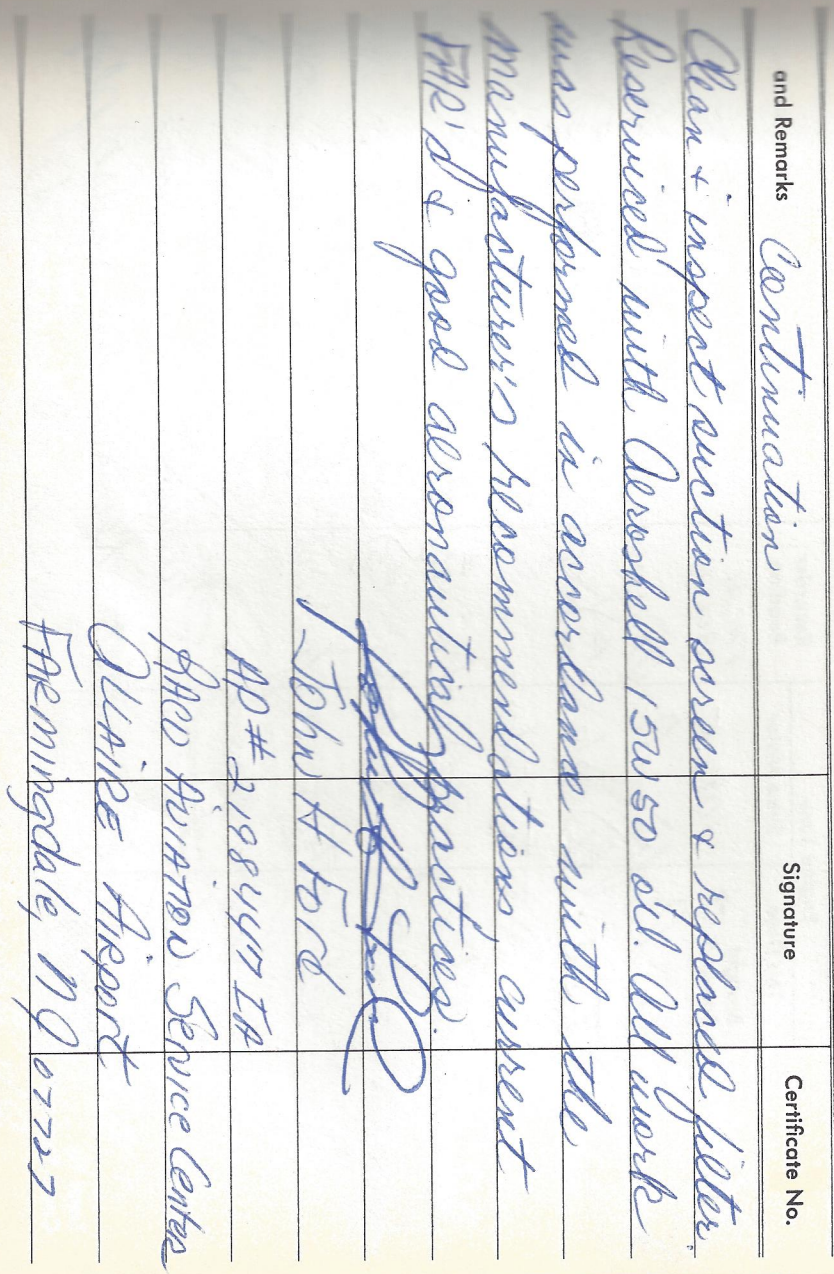 and Remarks Continuation Signature Certificate No.
Clean & inspect suction screen & replaced filter.
Reserviced with Aeroshell 15W50 oil. All work
was performed in accordance with the
manufacturer's recommendations, current
FAR's & good aeronautical practices.
John H Ford
AP# 2198447 IA
Aviation Service Center
Allaire Airport
Farmingdale, NJ 07727